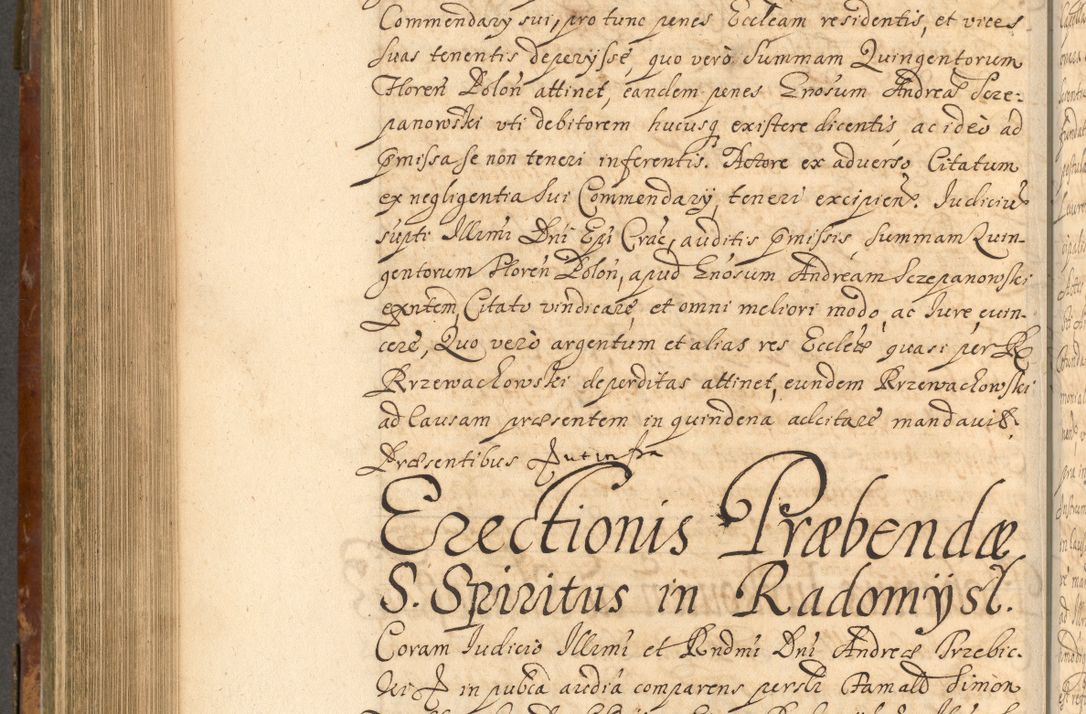 Commendarÿ sui, pro tunc penes Eccleam residentis, et vices
suas tenentis deperÿsse, quo verò Summam Quingentorum
Floreñ Poloñ attinet, eandem penes Gnosum Andream Scze-
panowski vti debitorem hucusq existere dicentis, ac ideò ad
pmissa se non teneri inferentis. Actore ex adverso Citatum
ex negligentia sui Commendarÿ, teneri excipieñ. Iudiciu
supti Illrmi Dni Epi Crac, auditis pmissis Summam Quin-
gentorum Floreñ Poloñ, apud Gnosum Andream Sczepanowski
exntem, Citato vindicare, et omni meliori modo, ac Iure, euin-
cere, Quo verò argentum et alias res Eccleæ quasi per R
Krzewachowski deperditas attinet, eundem Krzewachowski
ad Causam præsentem in quindena adcitare mandauit.
Præsentibus ut infra
Erectionis Præbendæ
S. Spiritus in Radomÿsl.
Coram Iudicio Illrmi et Rndmi Dni Andreæ Trzebic-
ki in pubca audia comparens persli Famats Simon